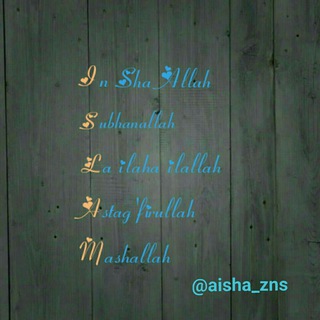 In Sha Allah
Subhanallah
La ilaha ilallah
Astag'firullah
Mashallah
@aisha_zns